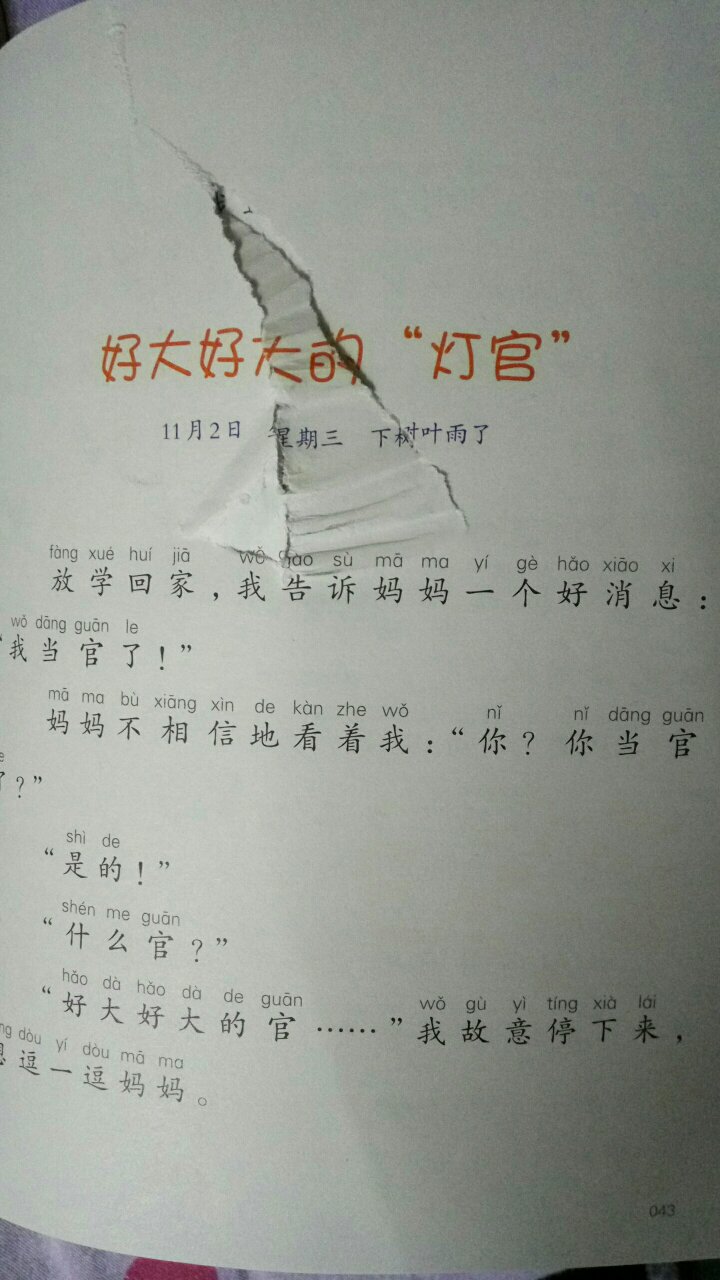 好大好大的“灯官”
11月2日 星期三 下树叶雨了
fàng xué huí jiā wǒ gào sù mā ma yí gè hǎo xiāo xi
放学回家，我告诉妈妈一个好消息：
wǒ dāng guān le
“我当官了！”
mā ma bù xiāng xìn de kàn zhe wǒ nǐ nǐ dāng guān
妈妈不相信地看着我：“你？你当官
了？”
shì de
“是的！”
shén me guān
“什么官？”
hǎo dà hǎo dà de guān wǒ gù yì tíng xià lái
“好大好大的官……”我故意停下来，
dòu yí dòu mā ma
想逗一逗妈妈。
043